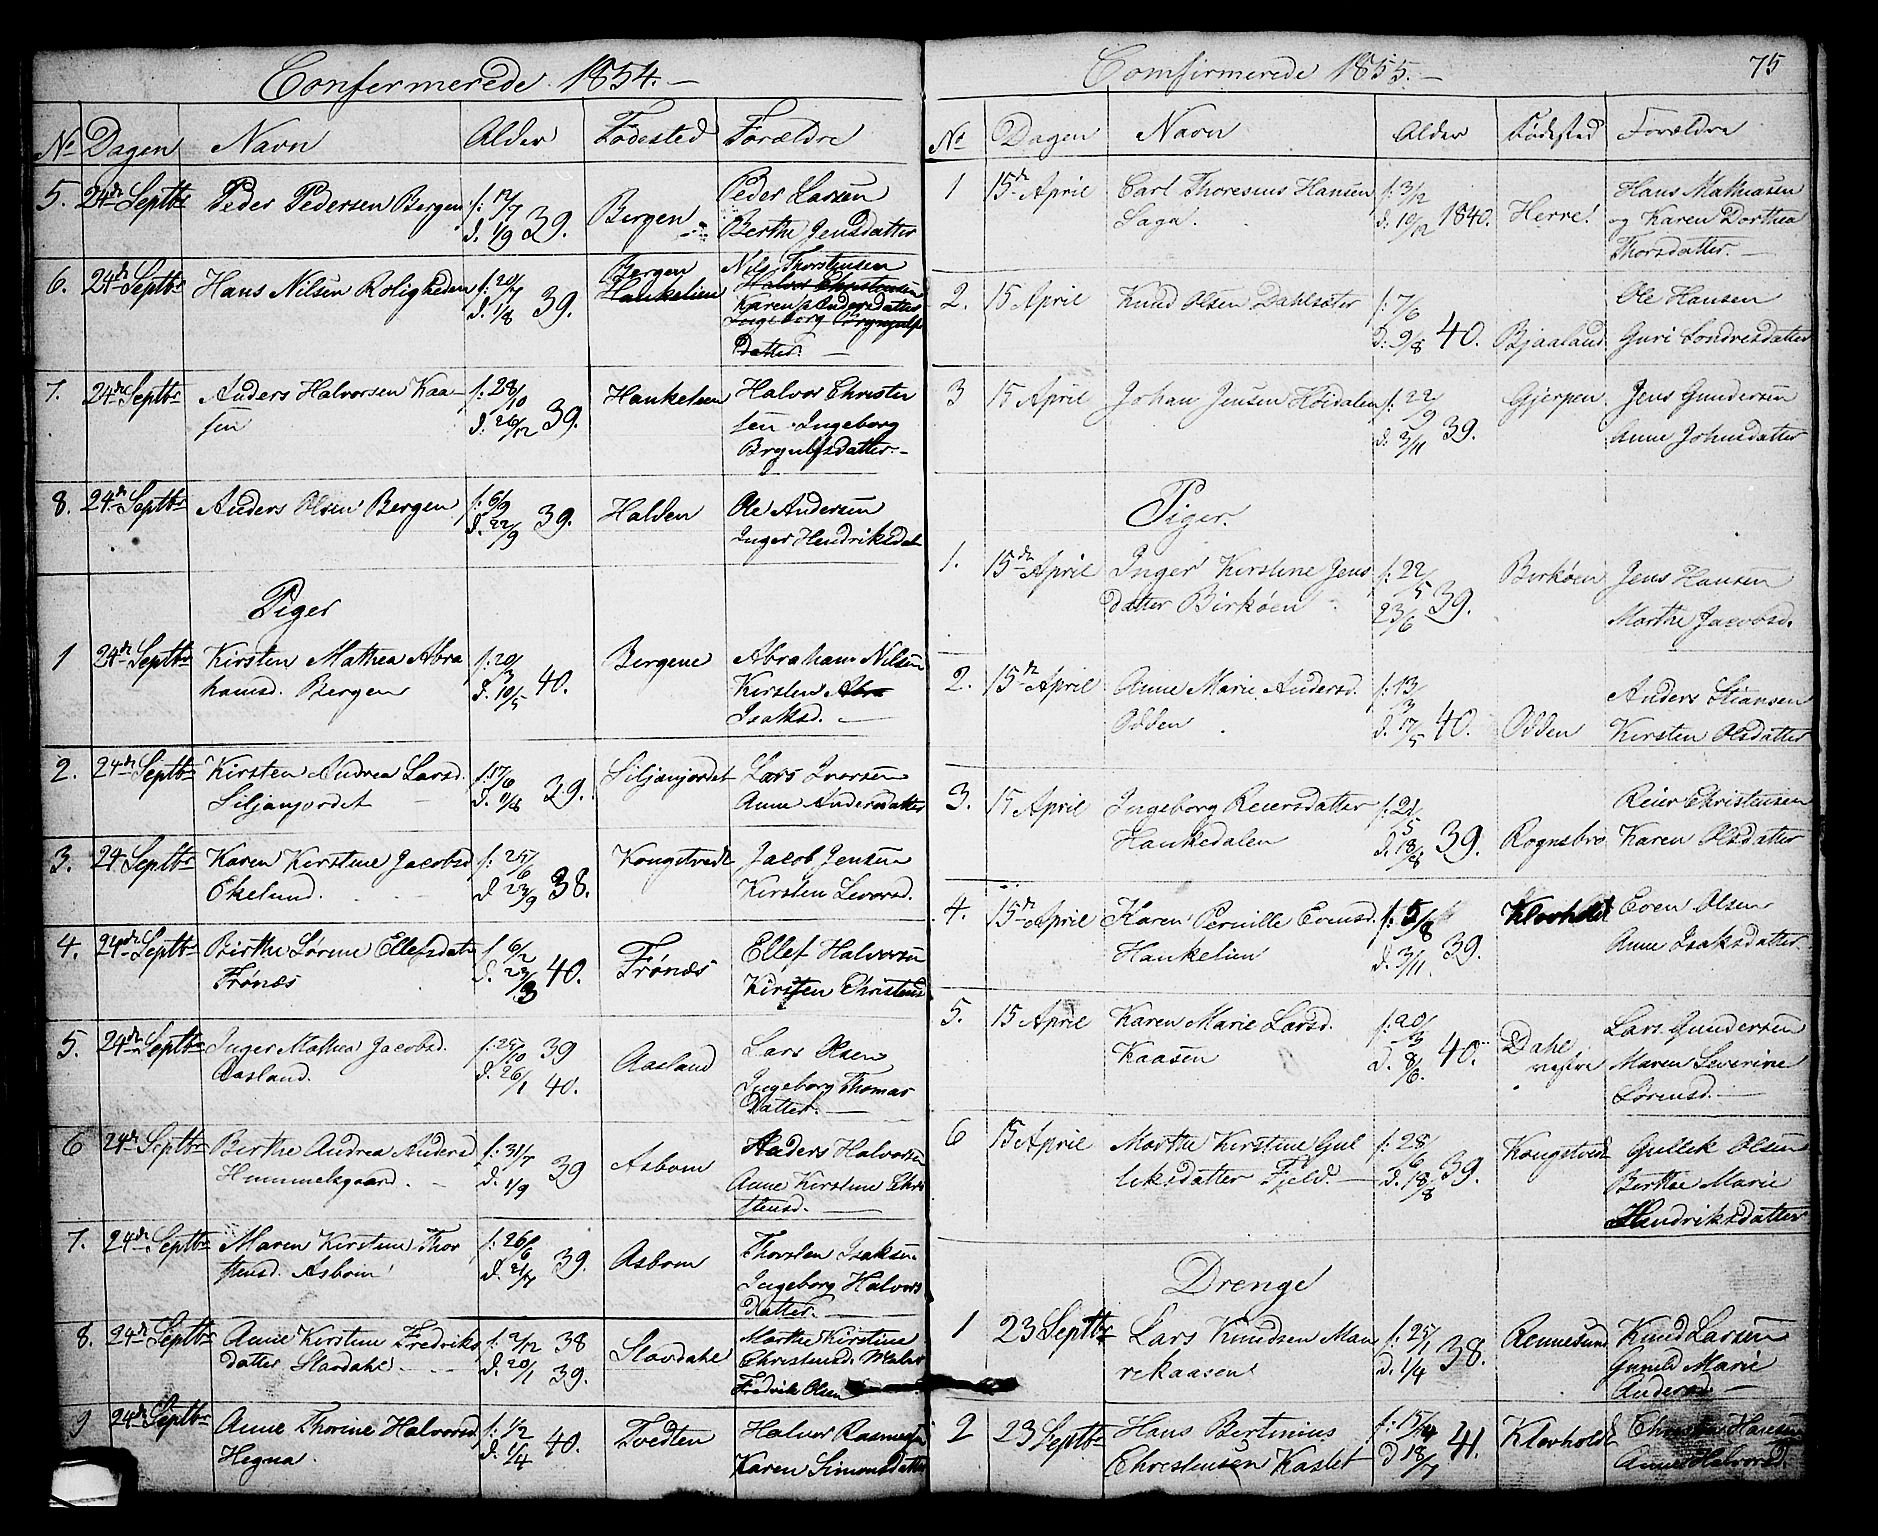 Confermerede 1854.
No Dagen Navn Alder Fødested Forældre
5. 24de Septbr Peder Pedersen Bergen f. 12/7 d. 1/9 39. Bergen Peder Larsen
Berthe Jensdatter
6. 24de Septbr Hans Nilsen Roligheden f. 20/7 d. 1/8 39. Bergen Nils Thorstensen
Hankelien Halvor Christensen
Karen Andersdatter
Ingeborg Brynjulfs
Datter
7. 24de Septbr Anders Halvorsen Kaa- f. 28/10 d. 26/12 39. Hankelien Halvor Christen
sen sen Ingeborg
Brynulfsdatter
8. 24de Septbr Anders Olsen Bergen f. 6/9 d. 22/9 39. Halden Ole Andersen
Inger Hendriksdat
Piger
1 24de Septbr Kirsten Mathea Abra f. 20/3 d. 10/5 40. Bergene Abraham Nilsen
hamsd. Bergen Kirsten Abra
Isaksd.
2. 24de Septbr Kirsten Andrea Larsd. f. 17/6 d. 1/8 39. Siljanjordet Lars Iversen
Siljanjordet Anne Andersdatter
3. 24 Septbr Karen Kirstine Jacobsd f. 25/6 d. 23/9 38. Kongstvedt Jacob Jensen
Ekelund Kirsten Levorsd.
4. 24de Septbr Birthe Sørine Ellefsdatr f. 6/2 d. 23/3 40. Frönæs Ellef Halvorsen
Frönæs Kirsten Christensd
5. 24de Septbr Inger Mathea Jacobsd. f. 25/10 39 Aasland Lars Olsen
Aasland. d. 26/1 40. Ingeborg Thomas
Datter.
6 24de Septbr Berthe Andrea Andersd f. 31/7 d. 1/9 39 Asbom Anders Halvorsen
Himmelsgaard Anne Kirstine Chri
stensd.
7. 24de Septbr Maren Kirstine Thor f. 26/6 d. 21/7 39. Asbom Thorsten Isaksen
stensd. Asbom Ingeborg Halvors
Datter.
8. 24de Septbr Anne Kirstine Fredriks f. 2/12 38 Slavdahl Marthe Kirstine
datter Slavdahl d. 20/1 39. Christensd.
Fredrik Olsen
9 24de Septbr Anne Thorine Halvorsd f. 1/2 d. 1/4 40. Tvedten Halvor Rasmusen
Hegna. Karen Simonsdatter
Comfirmerede 1855. 75
No Dagen Navn Alder Fødested Forældre
1 15de April Carl Thoresius Hansen f. 3/12 d. 10/12 1840. Herre Hans Mathiasen
Saga og Karen Dorthea
Thorsdatter
2. 15 April Knud Olsen Dahlsæter f. 7/6 d. 9/8 40. Bjaaland Ole Hansen
Guri Sondresdatter
3 15 April Johan Jensen Höidalen f. 22/9 d. 3/11 39. Gjerpen Jens Gundersen
Anne Johnsdatter
Piger.
1. 15de April Inger Kirstine Jens f. 22/5 23/6 39. Birköen Jens Hansen
datter Birköen Marthe Jacobsd.
2. 15de April Anne Marie Andersd. f. 13/3 d. 17/5 40. Odden Anders Stiansen
Odden Kirsten Olsdatter
3. 15 April Ingeborg Reiersdatter f. 21/5 d. 18/8 39. Rognsbro Reier Christensen
Hankedalen Karen Olsdatter
4. 15de April Karen Pernille Evensd. f. 5/8 d. 3/11 39. Klovholt Even Olsen
Hankelien Anne Isaksdatter
5. 15 April Karen Marie Larsd. f. 20/3 d. 8/6 40. Dahl Lars Gundersen
Kaasen vestre Maren Severine
Sörensd.
6 15 April Marthe Kirstine Gul f. 28/6 d. 18/8 39. Kongstvedt Gullek Olsen
leksdatter Fjeld. Berthe Marie
Hendriksdatter
Drenge
1 23 Septbr Lars Knudsen Mar f. 25/1 d. 1/4 38. Rennesund Knud Larsen
rekaasen Gunild Marie
Andersd.
2 23 Septbr Hans Bertinius f. 15/4 d 18/7 41. Klovholdt Christen Hansen
Christensen Kaslet Anne Halvorsd.